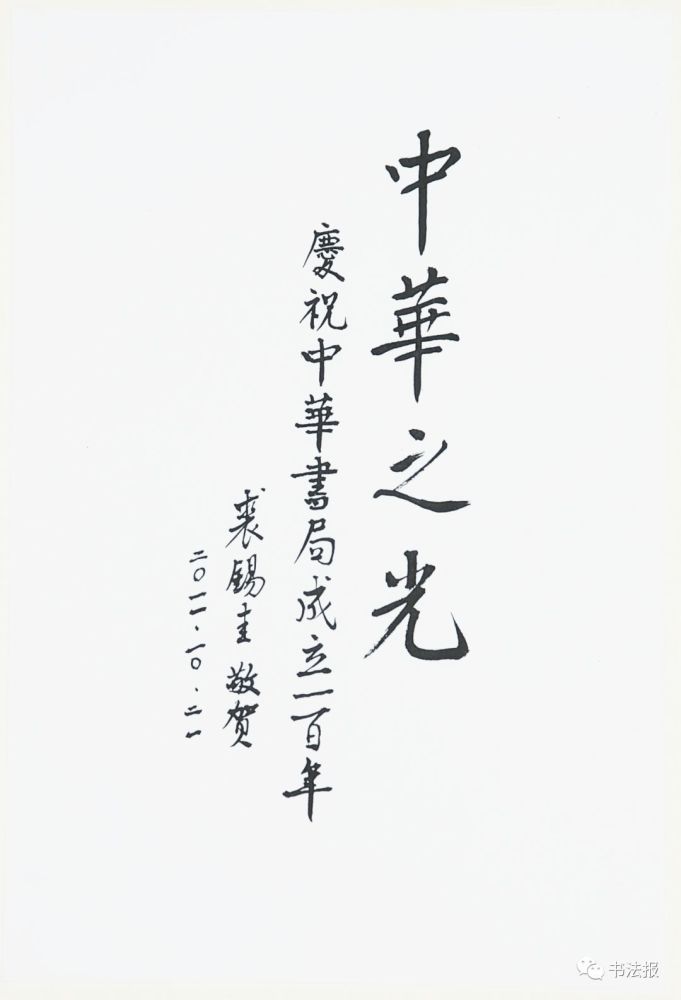 中華之光
慶祝中華書局成立一百年
裘錫圭敬贺
二〇一一·一〇·二一
书法报